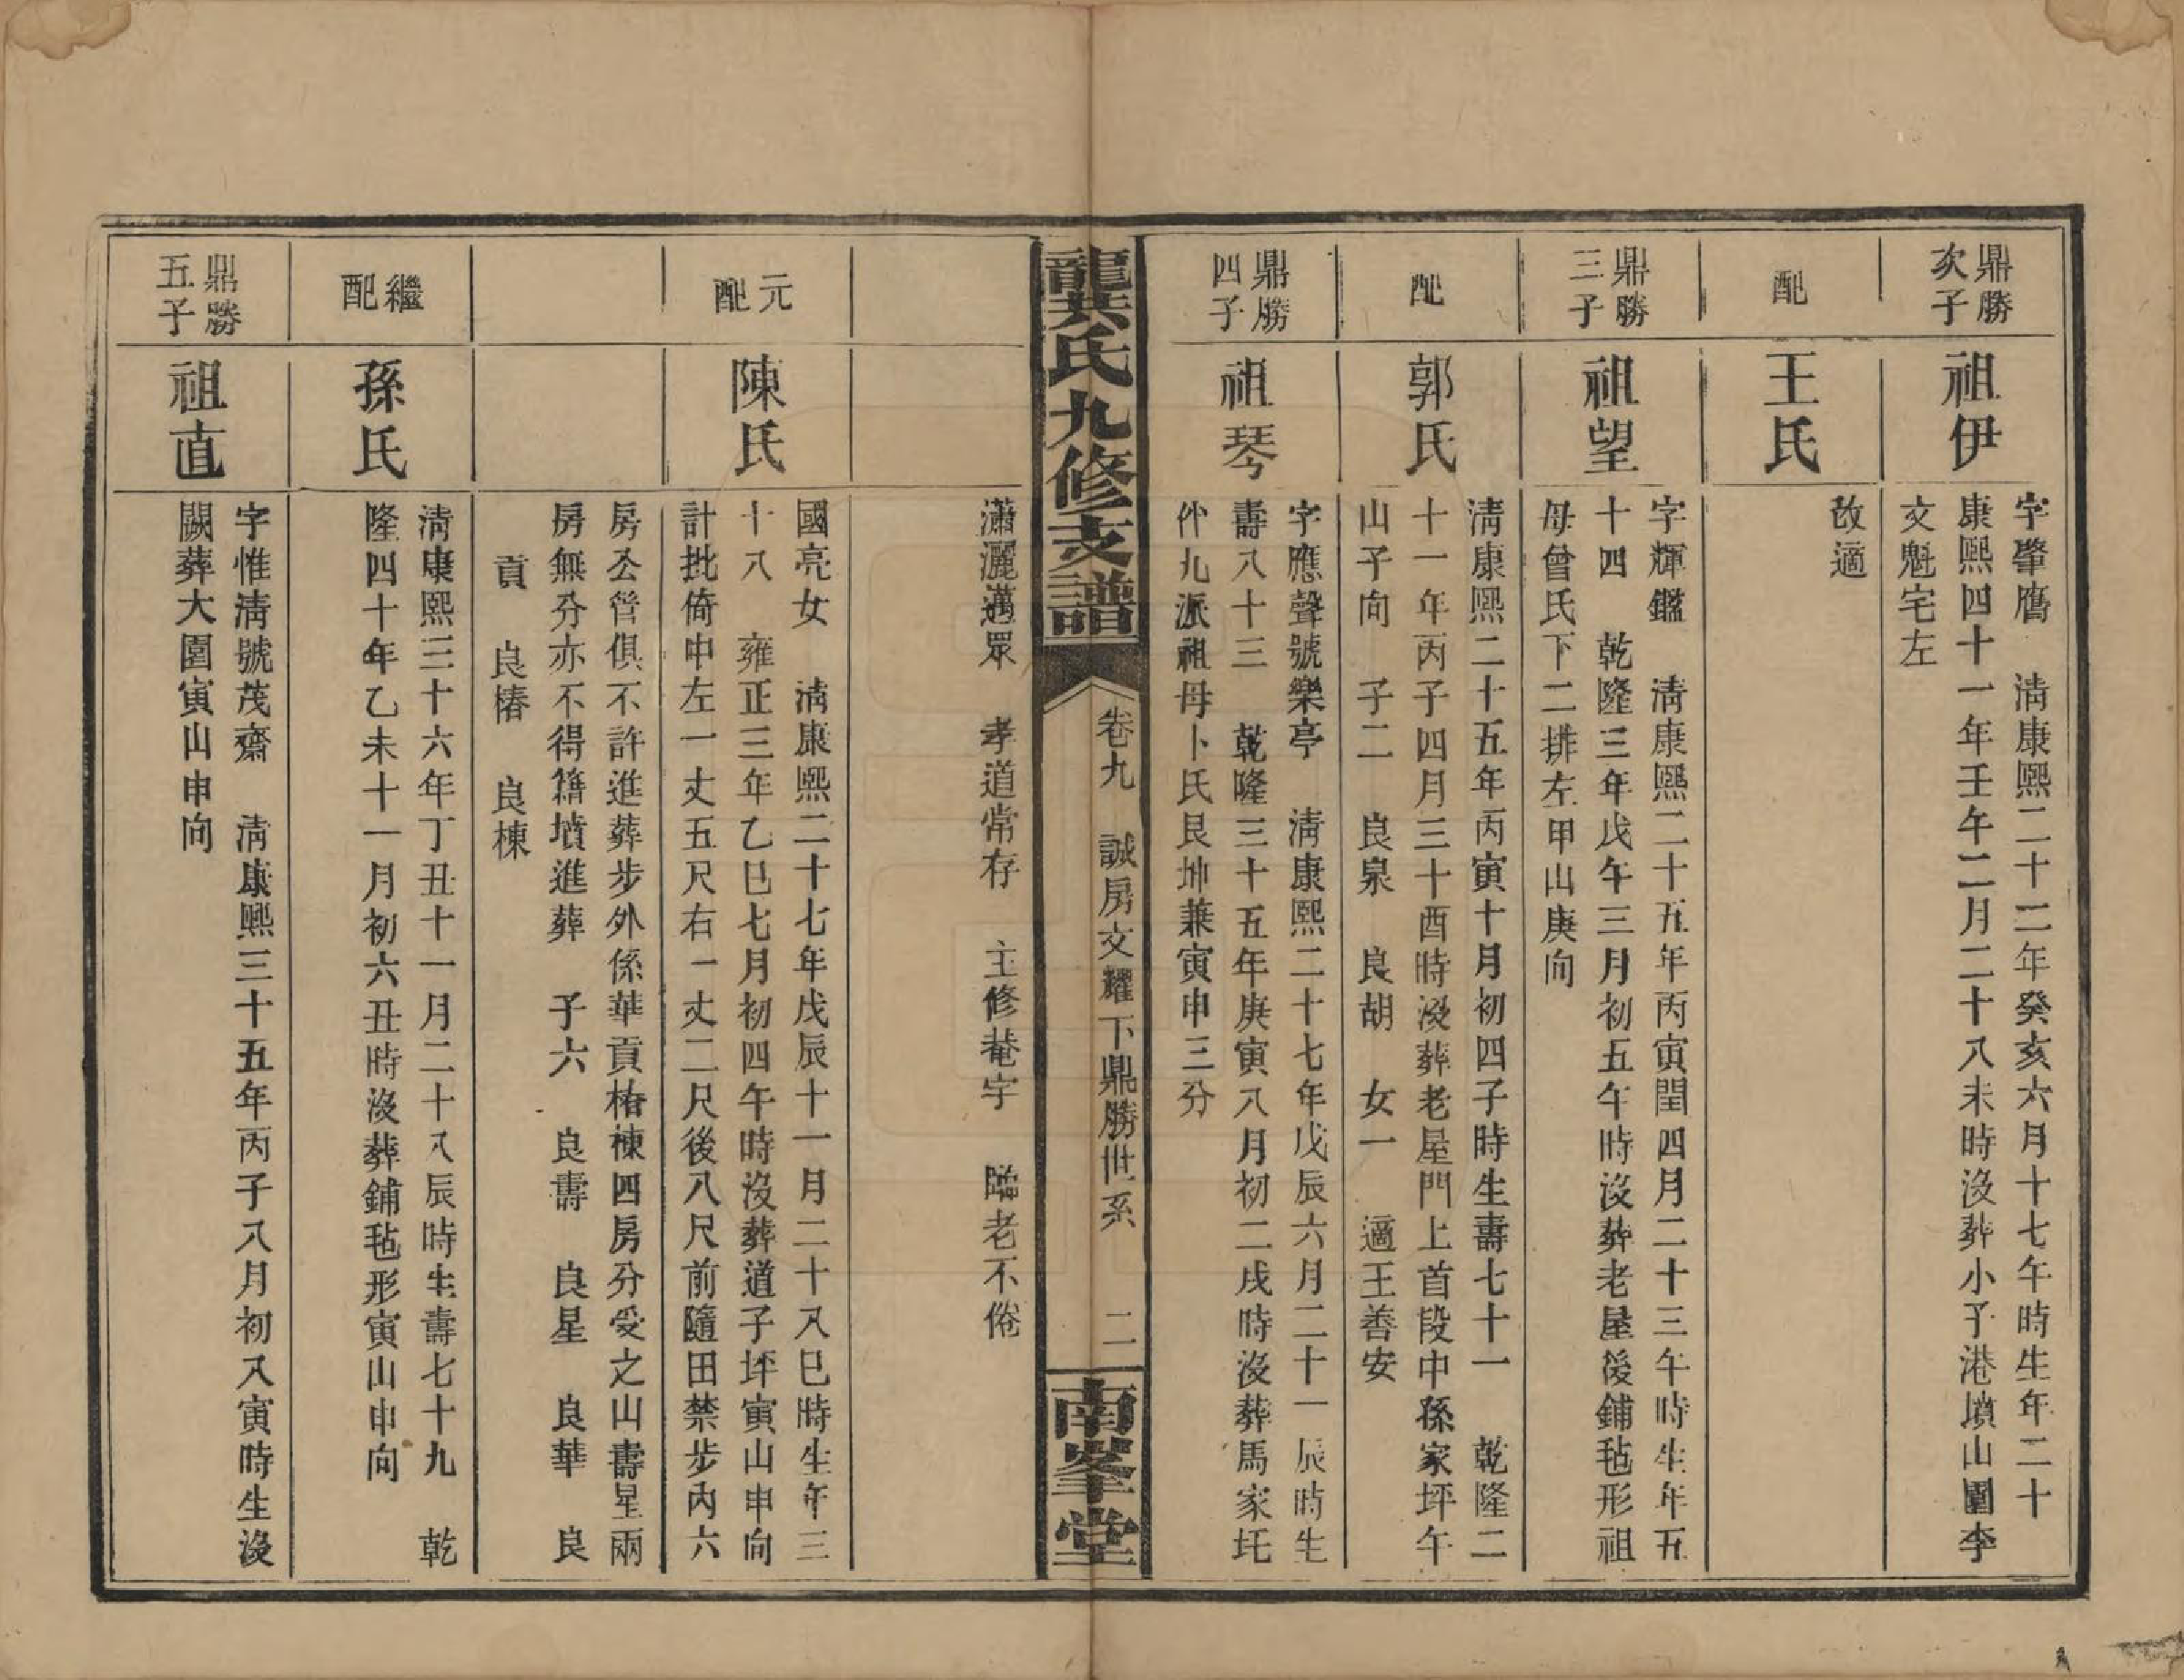 鼎勝
次子
祖伊
字肇鷹　淸康熙二十二年癸亥六月十七午時生年二十
康熙四十一年壬午二月二十八未時沒葬小子港墳山圍李
文魁宅左
配
王氏
改適
鼎勝
三子
祖望
字輝鑑　淸康熙二十五年丙寅閏四月二十三午時生年五
十四　乾隆三年戊午三月初五午時沒葬老屋後鋪毡形祖
母曾氏下二排左甲山庚向
配
郭氏
淸康熙二十五年丙寅十月初四子時生壽七十一　乾隆二
十一年丙子四月三十酉時沒葬老屋門上首段中孫家坪午
山子向　子二　良泉　良胡　女一　適王善安
鼎勝
四子
祖琴
字應聲號樂亭　淸康熙二十七年戊辰六月二十一辰時生
壽八十三　乾隆三十五年庚寅八月初二戌時沒葬馬家圫
仲九派祖母卜氏艮坤兼寅申三分
龍氏九修支譜
卷九　誠房文耀下鼎勝世系　二
南峯堂
瀟灑邁眾　孝道常存　主修菴宇　臨老不倦
元
配
陳氏
國亮女　淸康熙二十七年戊辰十一月二十八巳時生年三
十八　雍正三年乙巳七月初四午時沒葬道子坪寅山申向
計批倚中左一丈五尺右一丈二尺後八尺前隨田禁步內六
房公管俱不許進葬步外係華貢椿棟四房分受之山壽星兩
房無分亦不得藉墳進葬　子六　良壽　良星　良華　良
貢　良椿　良棟
繼
配
孫氏
淸康熙三十六年丁丑十一月二十八辰時生壽七十九　乾
隆四十年乙未十一月初六丑時沒葬鋪毡形寅山申向
鼎勝
五子
祖直
字惟淸號茂齋　淸康熙三十五年丙子八月初八寅時生沒
闕葬大圍寅山申向